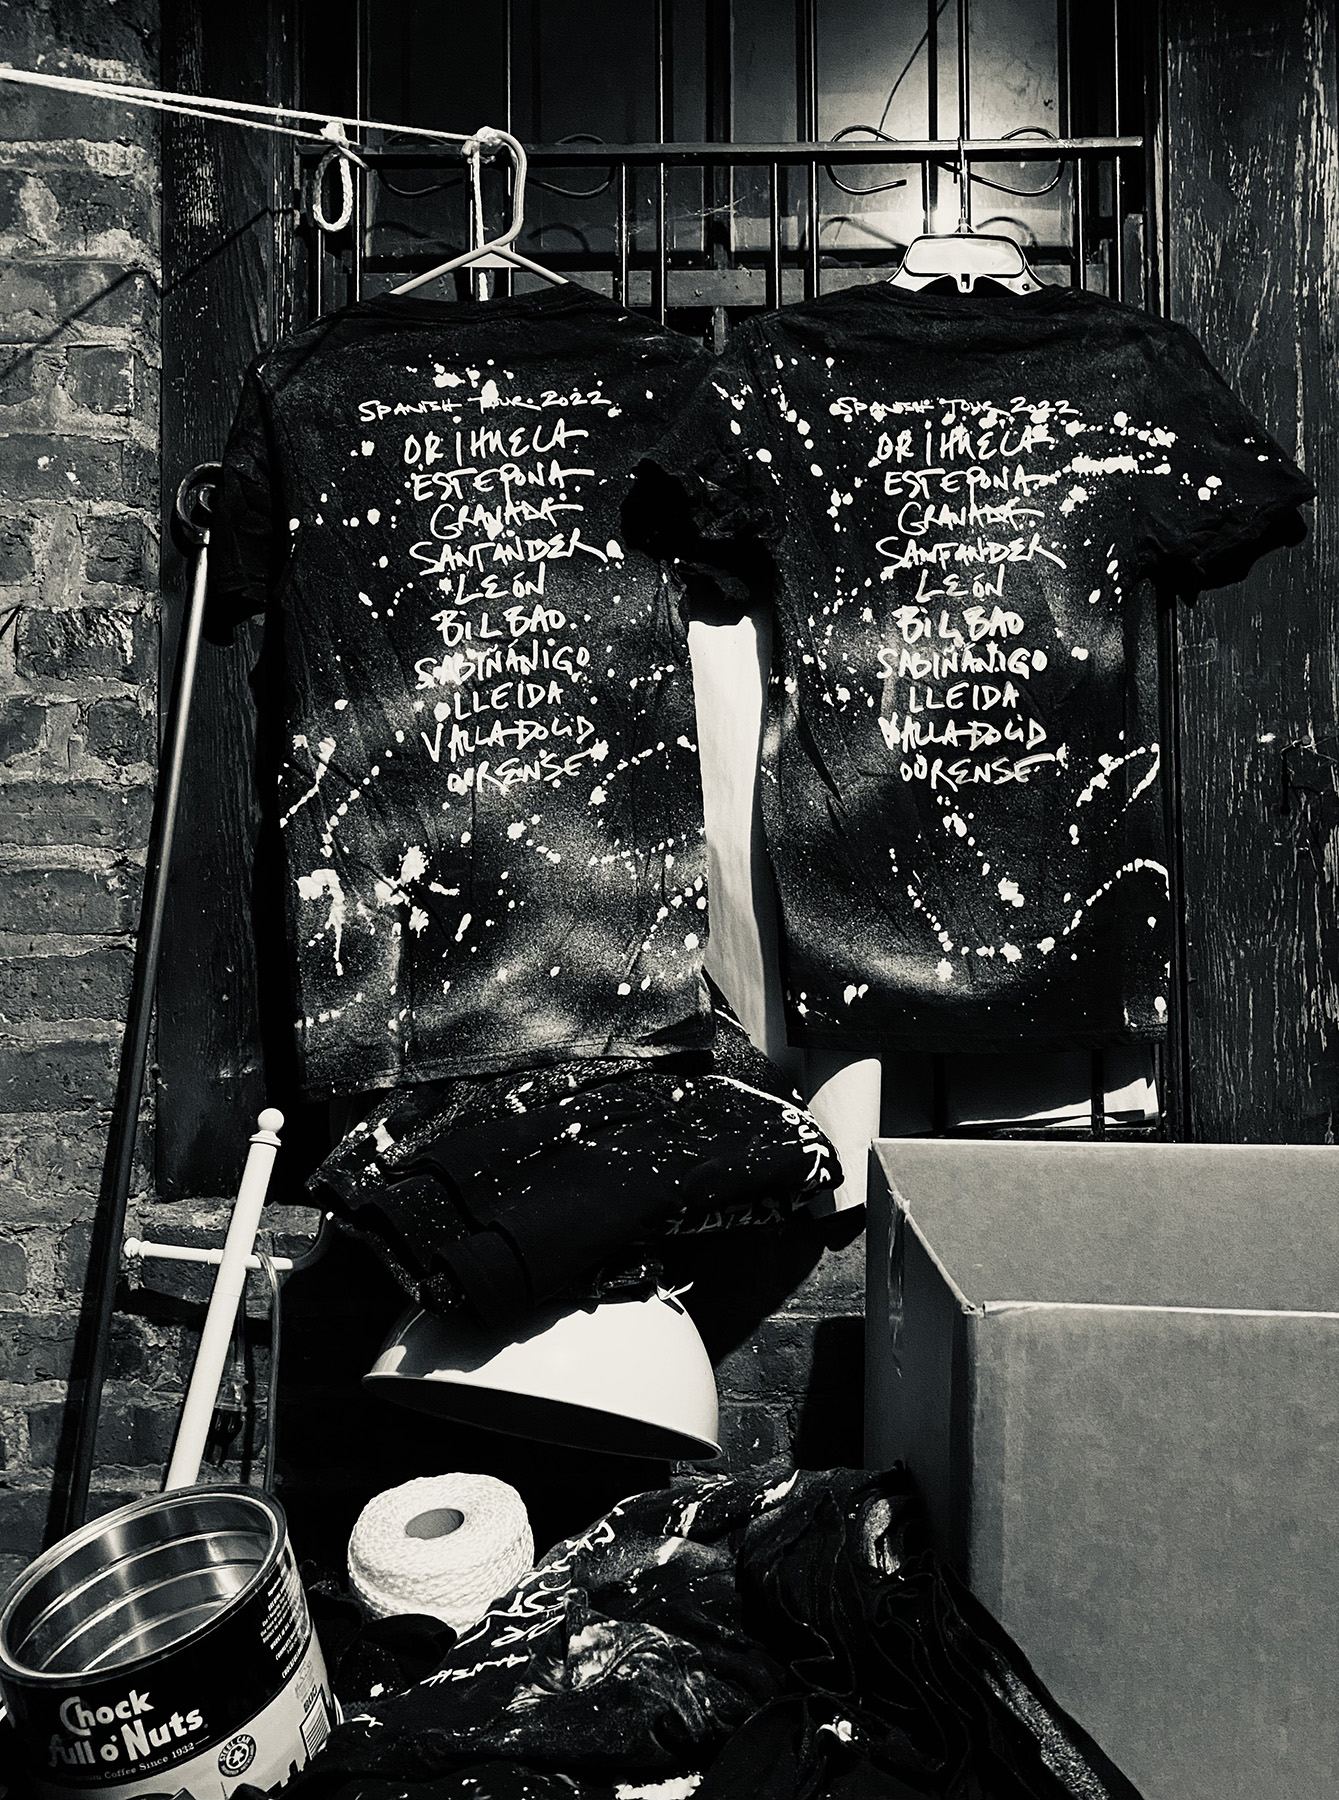 SPANISH TOUR 2022
ORIHUELA
ESTEPONA
GRANADA
SANTANDER
LEÓN
BILBAO
SABIÑÁNIGO
LLEIDA
VALLADOLID
OURENSE
SPANISH TOUR 2022
ORIHUELA
ESTEPONA
GRANADA
SANTANDER
LEÓN
BILBAO
SABIÑÁNIGO
LLEIDA
VALLADOLID
OURENSE
Chock
full o'Nuts
Coffee Since 1932
STEEL CAN